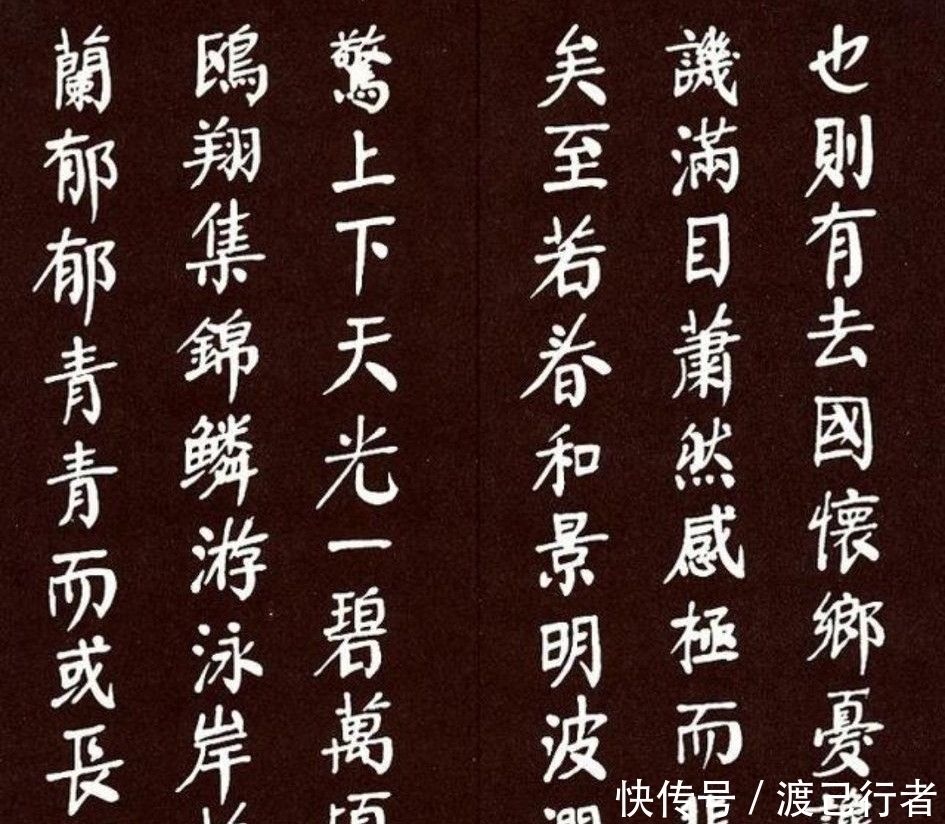 也則有去國懷鄉憂讒
譏滿目蕭然感極而
矣至若春和景明波瀾
驚上下天光一碧萬頃
鷗翔集錦鱗游泳岸
蘭郁郁青青而或長
快传号 / 渡己行者